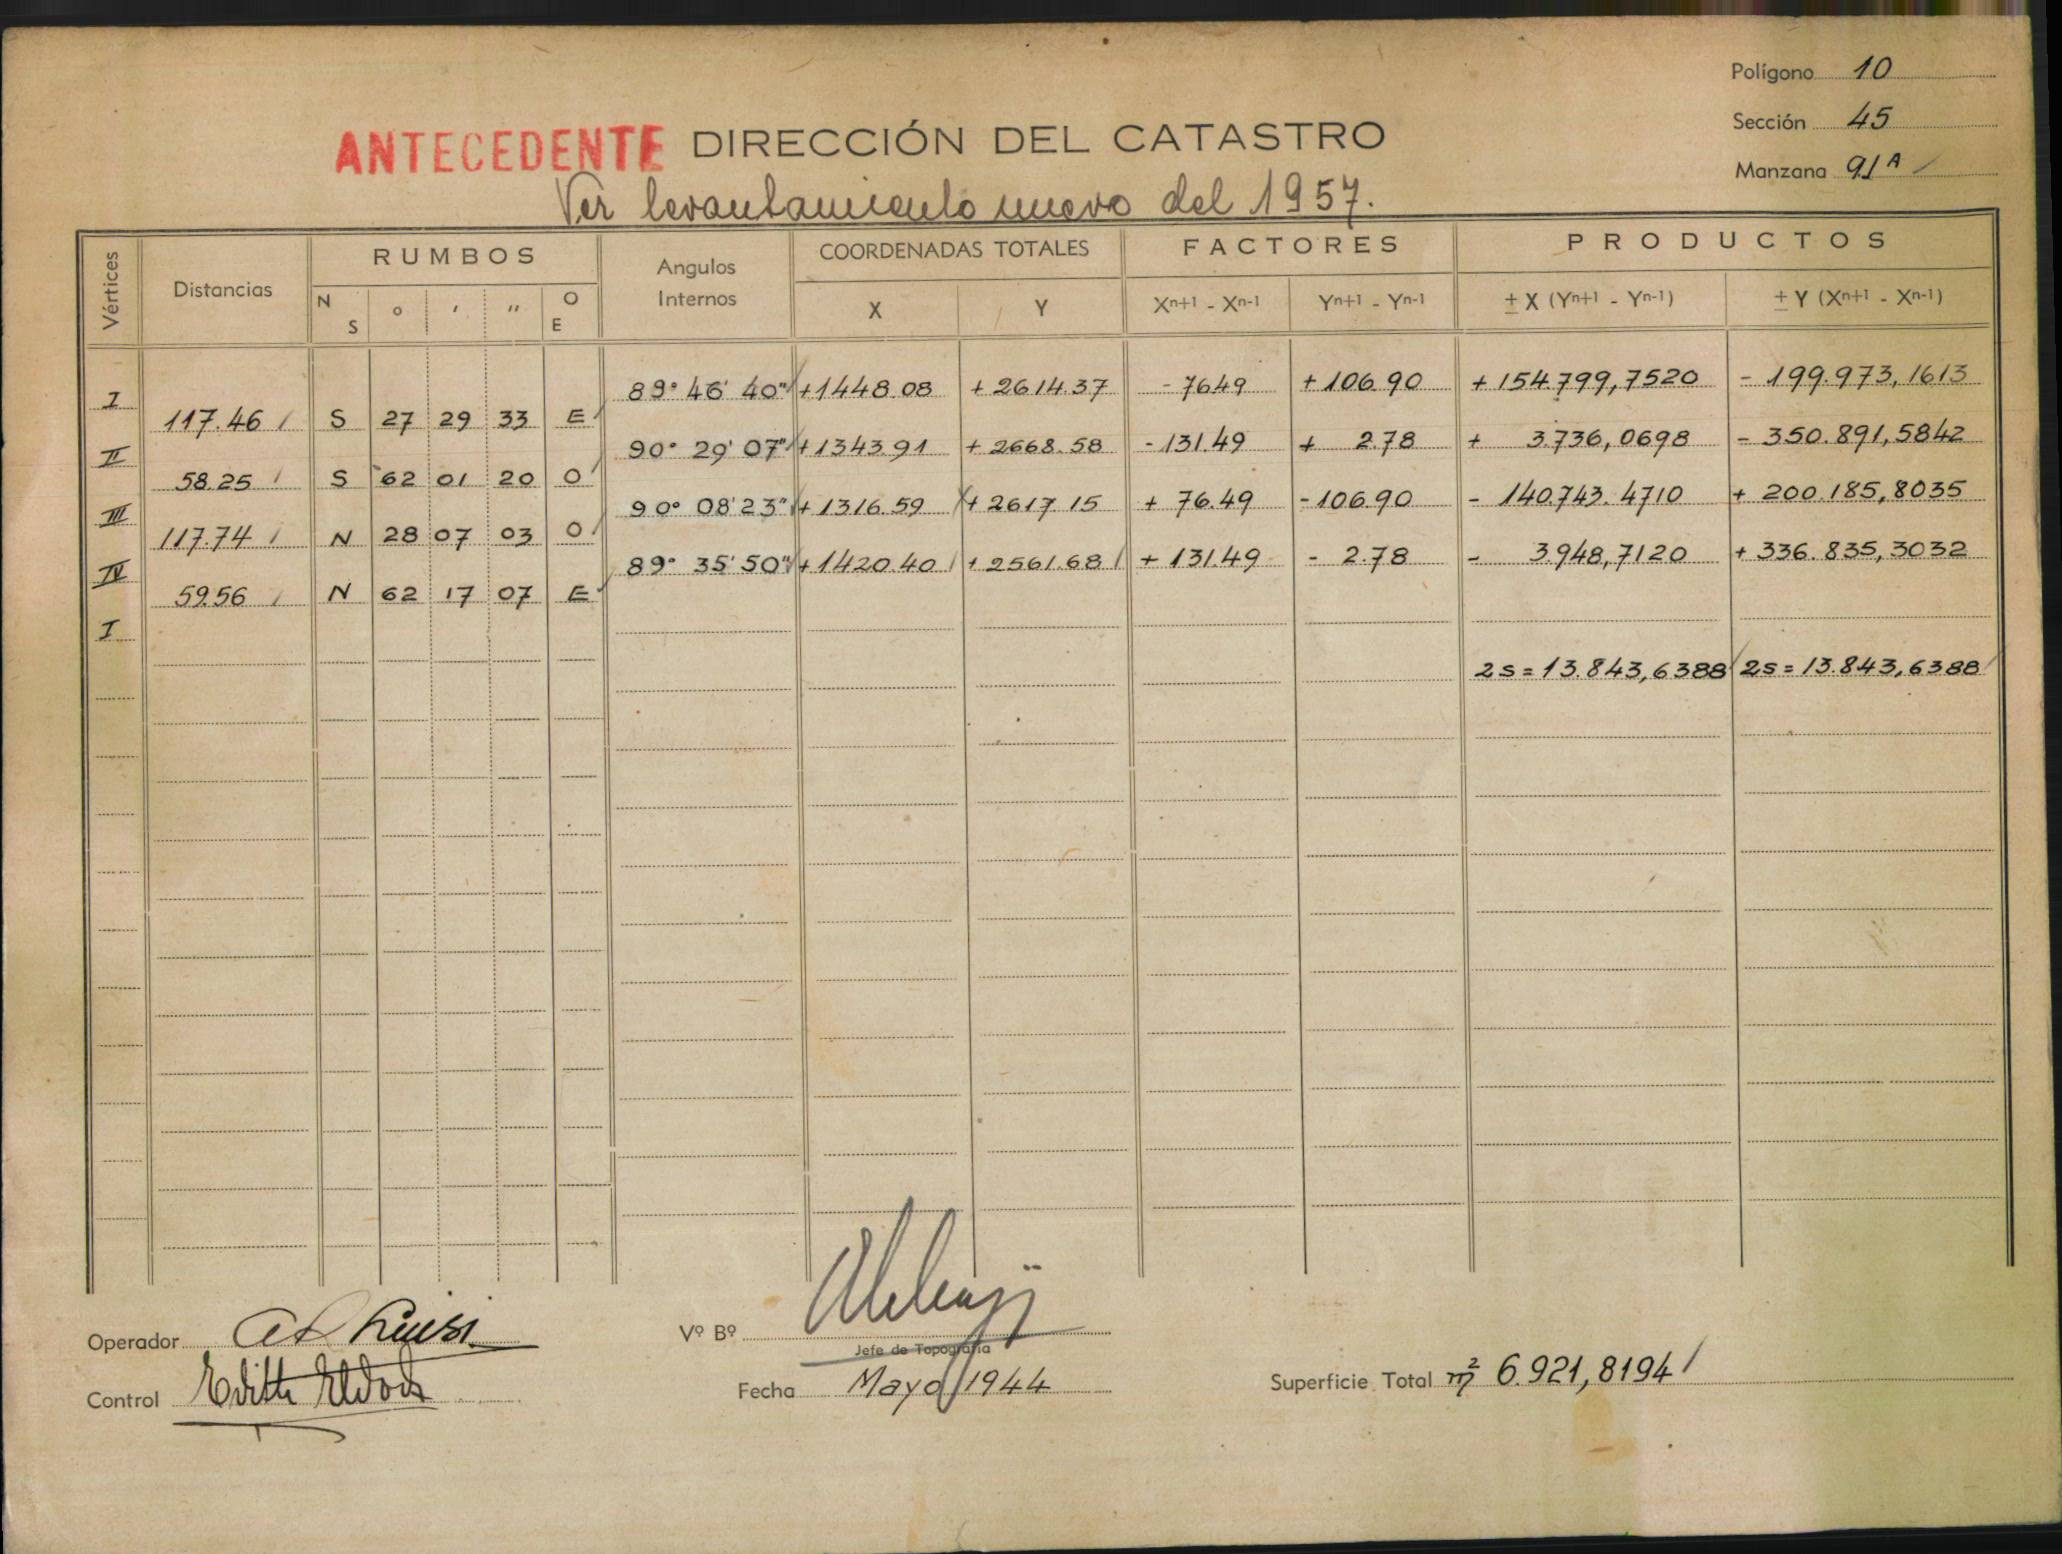 Polígono 10
Sección 45
Manzana 91 A
ANTECEDENTE DIRECCIÓN DEL CATASTRO
Ver levantamiento nuevo del 1957.
Vértices Distancias RUMBOS Angulos Internos COORDENADAS TOTALES FACTORES PRODUCTOS
N S ° ' " O E X Y Xn+1 - Xn-1 Yn+1 - Yn-1 ± X (Yn+1 - Yn-1) ± Y (Xn+1 - Xn-1)
I 89° 46' 40" +1448.08 + 2614.37 - 76.49 + 106.90 + 154.799,7520 - 199.973,1613
117.46 S 27 29 33 E
II 90° 29' 07" +1343.91 + 2668.58 - 131.49 + 2.78 + 3.736,0698 - 350.891,5842
58.25 S 62 01 20 O
III 90° 08' 23" + 1316.59 + 2617 15 + 76.49 - 106.90 - 140.743.4710 + 200.185,8035
117.74 N 28 07 03 O
IV 89° 35' 50" +1420.40 + 2561.68 + 131.49 - 2.78 - 3.948,7120 + 336.835,3032
59.56 N 62 17 07 E
I
2s = 13.843,6388 2s = 13.843,6388
Operador
Vº Bº
Jefe de Topografía
Control Edith
Fecha Mayo/1944
Superficie Total m² 6.921,8194